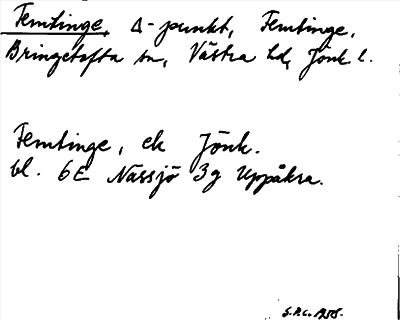 Femtinge, Δ-punkt, Femtinge,
Bringetofta sn, Västra hd, Jönk l.
Femtinge, ek Jönk.
bl. 6E Nässjö 3g Uppåkra.
S.P.C. 1958.